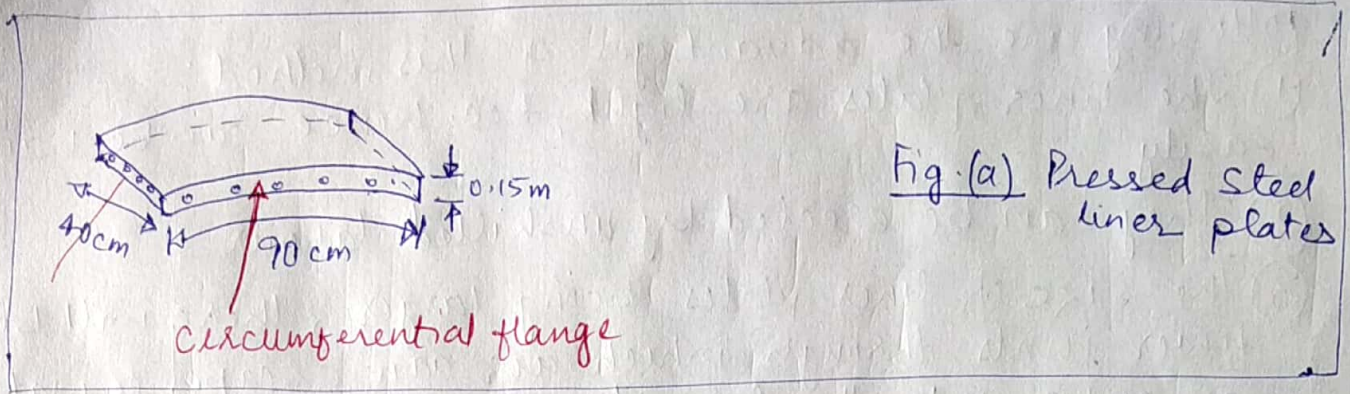 0.15m
40cm
90 cm
circumferential flange
Fig.(a) Pressed steel
liner plates